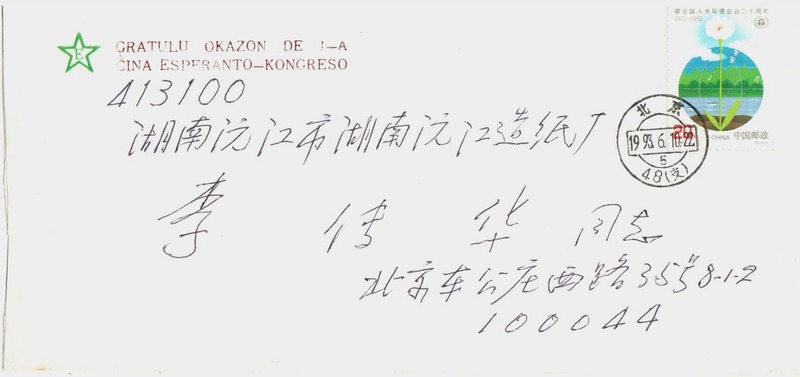 E
GRATULU OKAZON DE I-A
ĈINA ESPERANTO-KONGRESO
413100
湖南沅江市湖南沅江造纸厂
李传华同志
北京车公庄西路35号8-1-2
100044
联合国人类环境会议二十周年
1972-1992
20
CHINA 中国邮政
北京
1993.6.10.22
5
48(支)